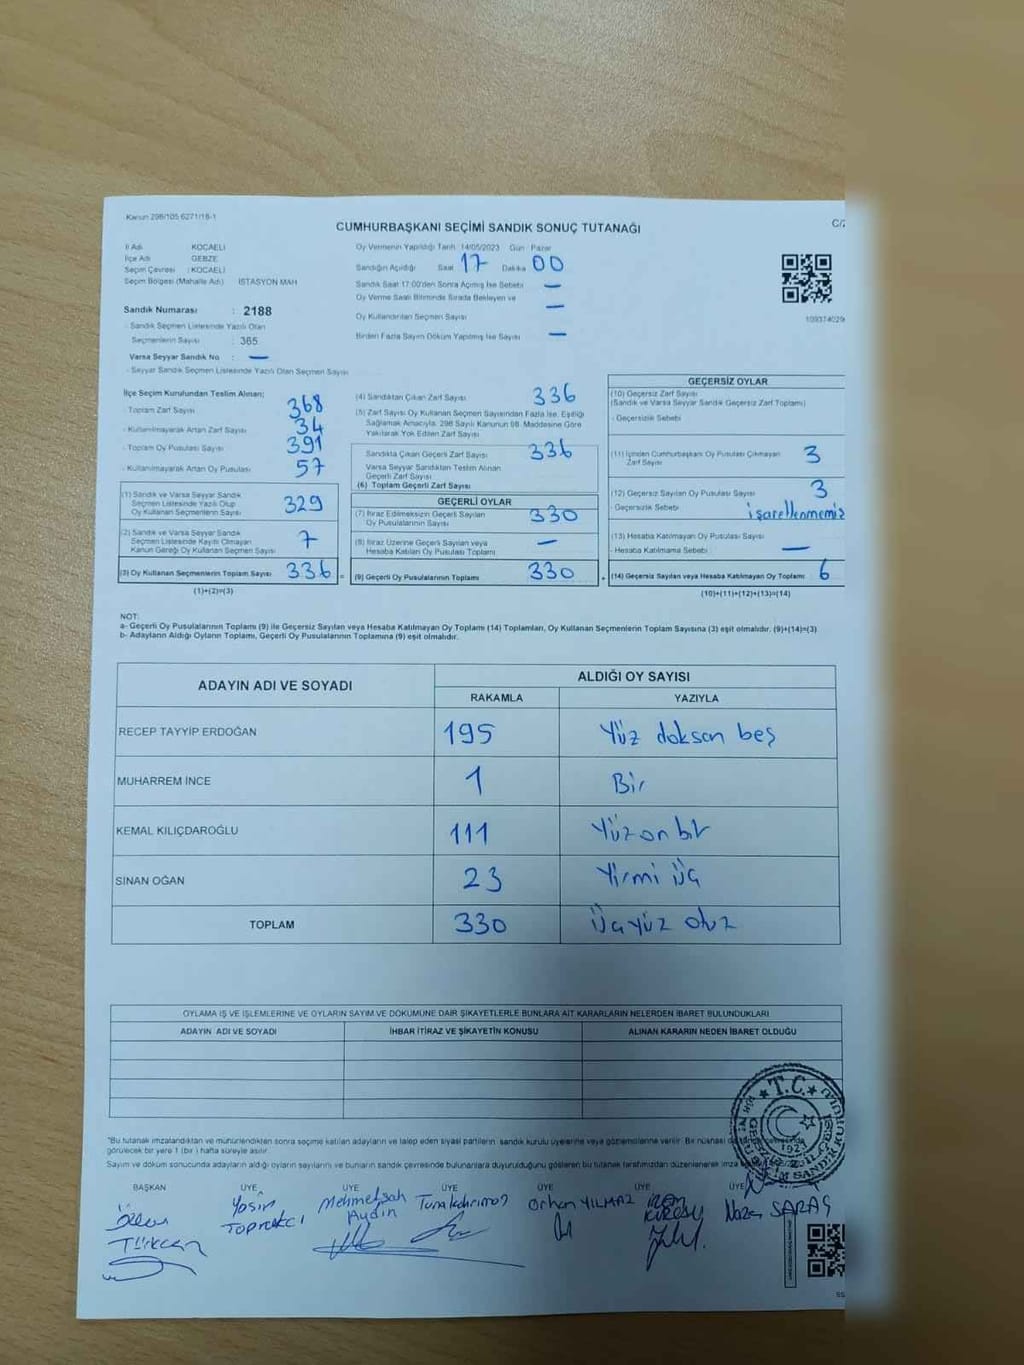 Kanun 298/105 6271/18-1
C/2
CUMHURBAŞKANI SEÇİMİ SANDIK SONUÇ TUTANAĞI
İl Adı KOCAELİ
İlçe Adı GEBZE
Seçim Çevresi : KOCAELİ
Seçim Bölgesi (Mahalle Adı) İSTASYON MAH
Sandık Numarası : 2188
Sandık Seçmen Listesinde Yazılı Olan
Seçmenlerin Sayısı : 365
Varsa Seyyar Sandık No : —
Seyyar Sandık Seçmen Listesinde Yazılı Olan Seçmen Sayısı
Oy Vermenin Yapıldığı Tarih 14/05/2023 Gün Pazar
Sandığın Açıldığı Saat 17 Dakika 00
Sandık Saat 17:00'den Sonra Açılmış İse Sebebi —
Oy Verme Saati Bitiminde Sırada Bekleyen ve
Oy Kullandırılan Seçmen Sayısı —
Birden Fazla Sayım Döküm Yapılmış İse Sayısı —
İlçe Seçim Kurulundan Teslim Alınan;
- Toplam Zarf Sayısı 368
- Kullanılmayarak Artan Zarf Sayısı 34
- Toplam Oy Pusulası Sayısı 391
- Kullanılmayarak Artan Oy Pusulası 57
(1) Sandık ve Varsa Seyyar Sandık
Seçmen Listesinde Yazılı Olup
Oy Kullanan Seçmenlerin Sayısı 329
(2) Sandık ve Varsa Seyyar Sandık
Seçmen Listesinde Kayıtlı Olmayan
Kanun Gereği Oy Kullanan Seçmen Sayısı 7
(3) Oy Kullanan Seçmenlerin Toplam Sayısı 336 =
(1)+(2)=(3)
(4) Sandıktan Çıkan Zarf Sayısı 336
(5) Zarf Sayısı Oy Kullanan Seçmen Sayısından Fazla İse, Eşitliği
Sağlamak Amacıyla, 298 Sayılı Kanunun 98. Maddesine Göre
Yakılarak Yok Edilen Zarf Sayısı
Sandıkta Çıkan Geçerli Zarf Sayısı 336
Varsa Seyyar Sandıktan Teslim Alınan
Geçerli Zarf Sayısı
(6) Toplam Geçerli Zarf Sayısı
GEÇERLİ OYLAR
(7) İtiraz Edilmeksizin Geçerli Sayılan
Oy Pusulalarının Sayısı 330
(8) İtiraz Üzerine Geçerli Sayılan veya
Hesaba Katılan Oy Pusulası Toplamı —
(9) Geçerli Oy Pusulalarının Toplamı 330 +
GEÇERSİZ OYLAR
(10) Geçersiz Zarf Sayısı
(Sandık ve Varsa Seyyar Sandık Geçersiz Zarf Toplamı)
- Geçersizlik Sebebi
(11) İçinden Cumhurbaşkanı Oy Pusulası Çıkmayan
Zarf Sayısı 3
(12) Geçersiz Sayılan Oy Pusulası Sayısı 3
- Geçersizlik Sebebi işaretlenmemiş
(13) Hesaba Katılmayan Oy Pusulası Sayısı
- Hesaba Katılmama Sebebi —
(14) Geçersiz Sayılan veya Hesaba Katılmayan Oy Toplamı 6
(10)+(11)+(12)+(13)=(14)
NOT:
a- Geçerli Oy Pusulalarının Toplamı (9) ile Geçersiz Sayılan veya Hesaba Katılmayan Oy Toplamı (14) Toplamları, Oy Kullanan Seçmenlerin Toplam Sayısına (3) eşit olmalıdır. (9)+(14)=(3)
b- Adayların Aldığı Oyların Toplamı, Geçerli Oy Pusulalarının Toplamına (9) eşit olmalıdır.
ADAYIN ADI VE SOYADI
ALDIĞI OY SAYISI
RAKAMLA YAZIYLA
RECEP TAYYİP ERDOĞAN 195 Yüz doksan beş
MUHARREM İNCE 1 Bir
KEMAL KILIÇDAROĞLU 111 Yüz on bir
SİNAN OĞAN 23 Yirmi üç
TOPLAM 330 Üçyüz otuz
OYLAMA İŞ VE İŞLEMLERİNE VE OYLARIN SAYIM VE DÖKÜMÜNE DAİR ŞİKAYETLERLE BUNLARA AİT KARARLARIN NELERDEN İBARET BULUNDUKLARI
ADAYIN ADI VE SOYADI İHBAR İTİRAZ VE ŞİKAYETİN KONUSU ALINAN KARARIN NEDEN İBARET OLDUĞU
"Bu tutanak imzalandıktan ve mühürlendikten sonra seçime katılan adayların ve talep eden siyasi partilerin, sandık kurulu üyelerine veya gözlemcilerine verilir. Bir nüshası da
görülecek bir yere 1 (bir) hafta süreyle asılır.
Sayım ve döküm sonucunda adayların aldığı oyların sayılarını ve bunların sandık çevresinde bulunanlara duyurulduğunu gösteren bu tutanak tarafımızdan düzenlenerek imza
T.C.
1923
BAŞKAN ÜYE ÜYE ÜYE ÜYE ÜYE ÜYE
Türkcan
Yasin
Toprakcı
Mehmetşah
Aydın
Orhan YILMAZ
SARAŞ